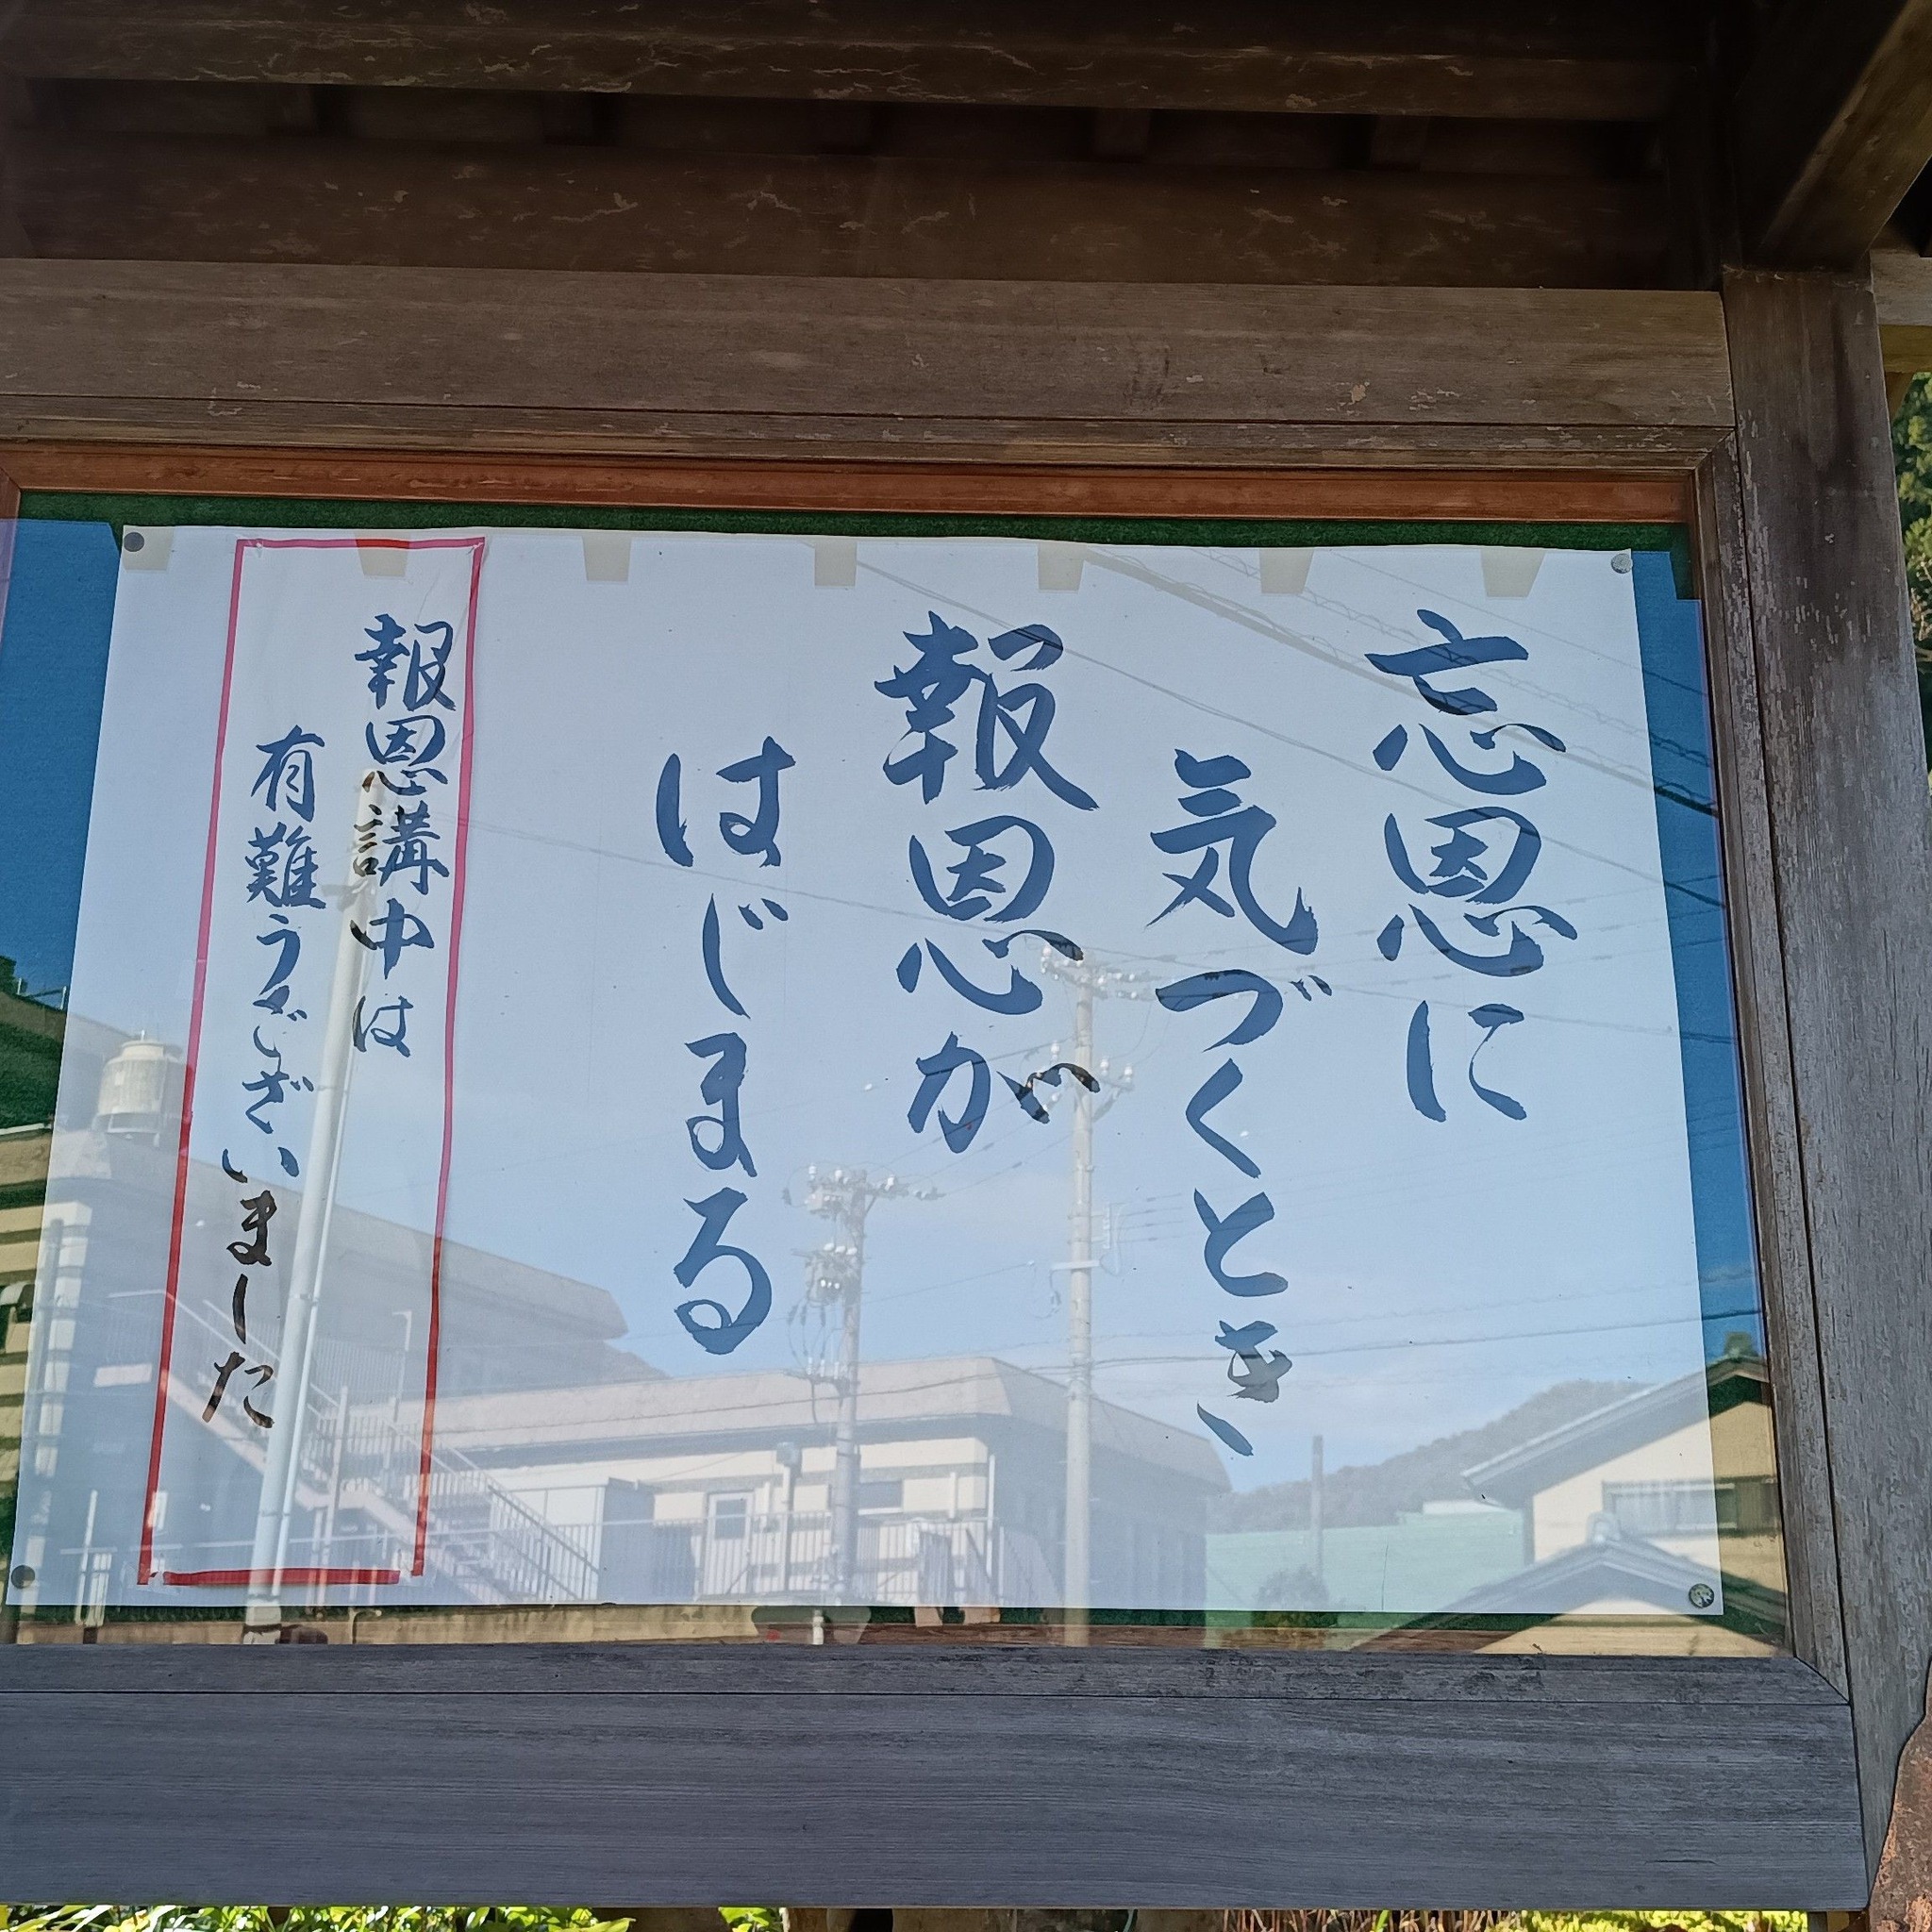 忘恩に
気づくとき
報恩が
はじまる
報恩講中は
有難うございました